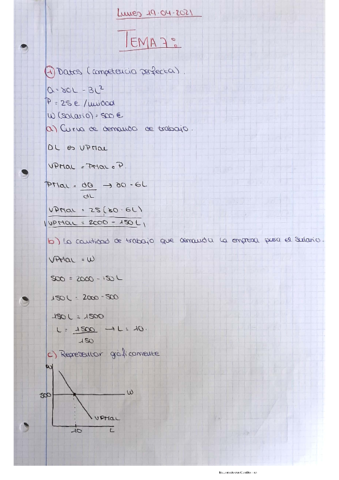 Lunes 19-04-2021
TEMA 7:
1) Datos (competencia perfecta).
Q = 80L - 3L²
P = 25€ /unidad
W (salario) = 500€
a) Curva de demanda de trabajo.
DL es VPMaL
VPMaL = PMaL · P
PMaL = dQ/dL → 80 - 6L
VPMaL = 25 (80 - 6L)
VPMaL = 2000 - 150L
b) La cantidad de trabajo que demanda la empresa para el salario.
VPMaL = W
500 = 2000 - 150L
150L = 2000 - 500
150L = 1500
L = 1500/150 → L = 10
c) Representar graficamente
W
500
W
VPMaL
10
L